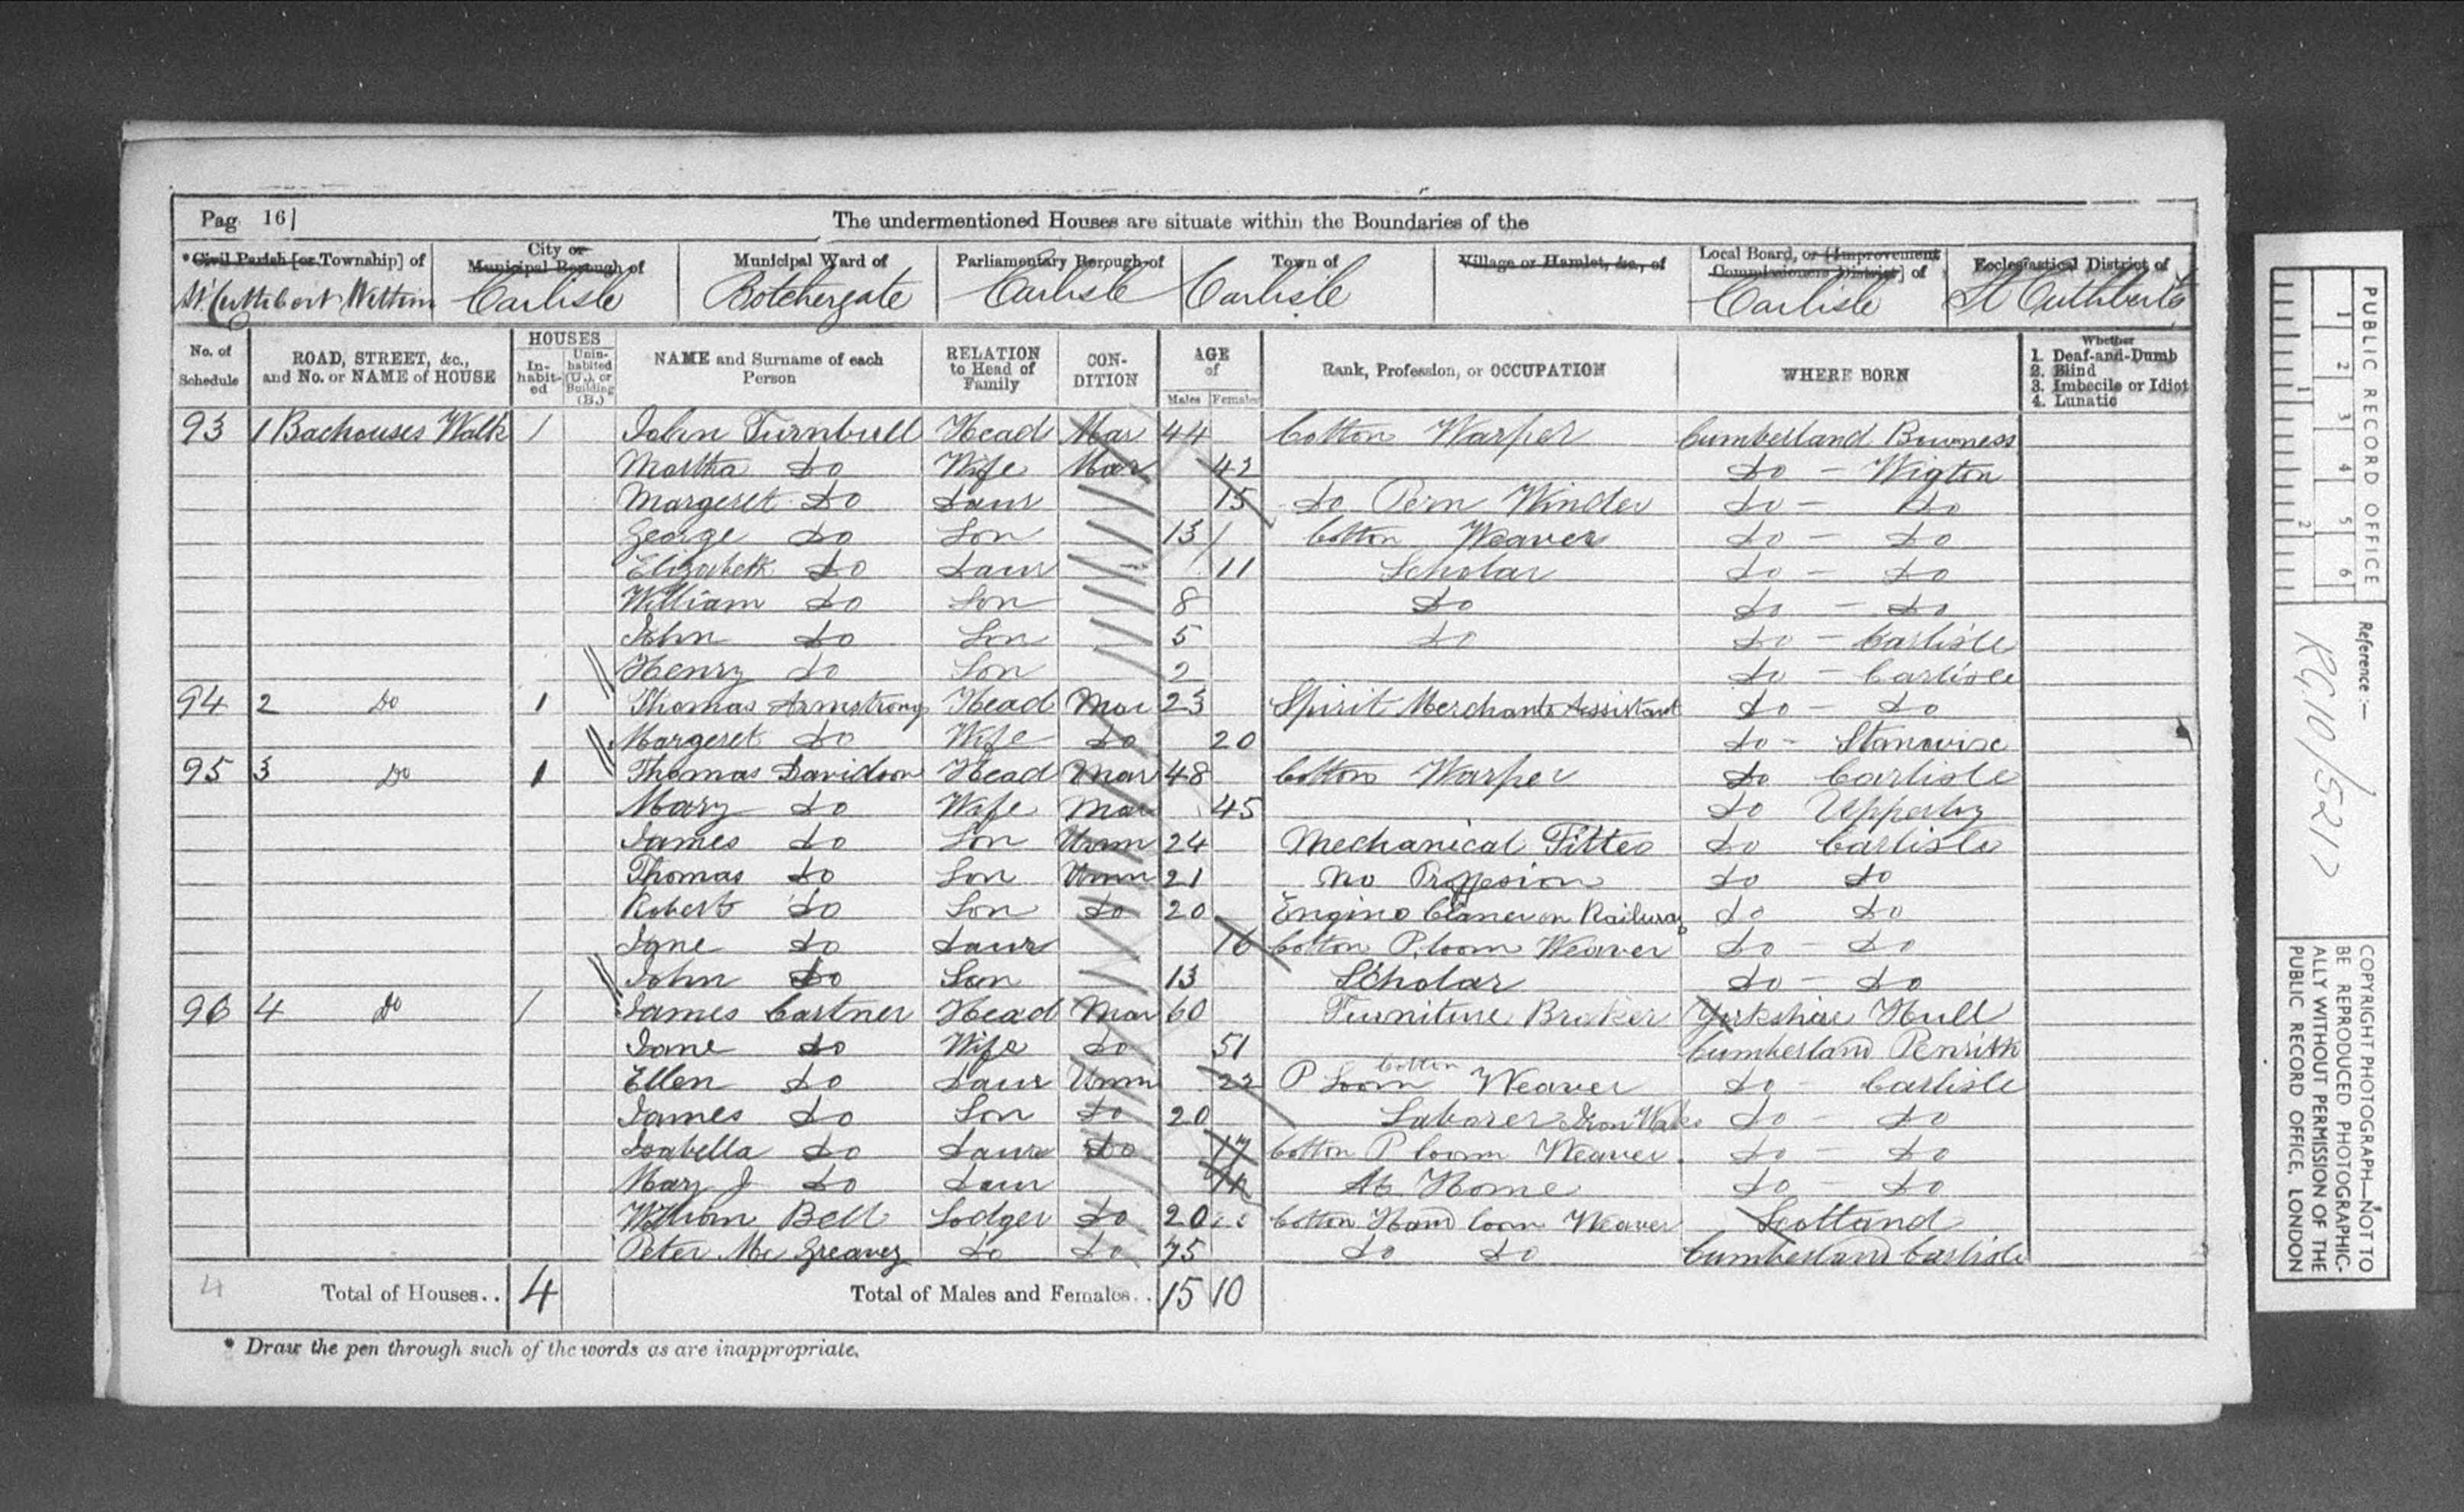 Pag 16
The undermentioned Houses are situate within the Boundaries of the
* Civil Parish [or Township] of
City or Municipal Borough of
Municipal Ward of
Parliamentary Borough of
Town of
Village or Hamlet, &c., of
Local Board, or [Improvement Commissioners District] of
Ecclesiastical District of
St Cuthbert Carlisle Botchergate Carlisle Carlisle Carlisle St Cuthberts
No. of Schedule
ROAD, STREET, &c., and No. or NAME of HOUSE
HOUSES
In-habit-ed
Unin-habited (U.), or Building (B.)
NAME and Surname of each Person
RELATION to Head of Family
CON-DITION
AGE of
Males Females
Rank, Profession, or OCCUPATION
WHERE BORN
Whether
1. Deaf-and-Dumb
2. Blind
3. Imbecile or Idiot
4. Lunatic
93 1 Bachouses Walk 1 John Turnbull Head Mar 44 Cotton Warper Cumberland Bowness
Martha Do Wife Mar 42 Do - Wigton
Margeret Do Daur 15 Do Pern Winder Do - Do
George Do Son 13 Cotton Weaver Do - Do
Elizabeth Do Daur 11 Scholar Do - Do
William Do Son 8 Do Do - Do
John Do Son 5 Do Do - Carlisle
Henry Do Son 2 Do - Carlisle
94 2 Do 1 Thomas Armstrong Head Mar 23 Spirit Merchants Assistant Do - Do
Margeret Do Wife Do 20 Do - Stanwix
95 3 Do 1 Thomas Davidson Head Mar 48 Cotton Warper Do Carlisle
Mary Do Wife Mar 45 Do Upperby
James Do Son Unm 24 Mechanical Fitter Do Carlisle
Thomas Do Son Unm 21 No Proffesion Do Do
Robert Do Son Do 20 Engine Cleaner on Railway Do Do
Jane Do Daur 16 Cotton P. loom Weaver Do - Do
John Do Son 13 Scholar Do - Do
96 4 Do 1 James Cartner Head Mar 60 Furniture Broker Yorkshire Hull
Jane Do Wife Do 51 Cumberland Penrith
Ellen Do Daur Unm 22 P Loom Cotton Weaver Do - Carlisle
James Do Son Do 20 Laborer Iron Works Do - Do
Isabella Do Daur Do 17 Cotton P loom Weaver. Do - Do
Mary J Do Daur At Home Do - Do
William Bell Lodger Do 20 Cotton Hand loom Weaver Scotland
Peter Mc Greavey Do Do 75 Do Do Cumberland Carlisle
4 Total of Houses.. 4 Total of Males and Females.. 15 10
* Draw the pen through such of the words as are inappropriate.
PUBLIC RECORD OFFICE
1 2 3 4 5 6
1 2
Reference :—
RG.10/5217
COPYRIGHT PHOTOGRAPH—NOT TO
BE REPRODUCED PHOTOGRAPHIC-
ALLY WITHOUT PERMISSION OF THE
PUBLIC RECORD OFFICE, LONDON